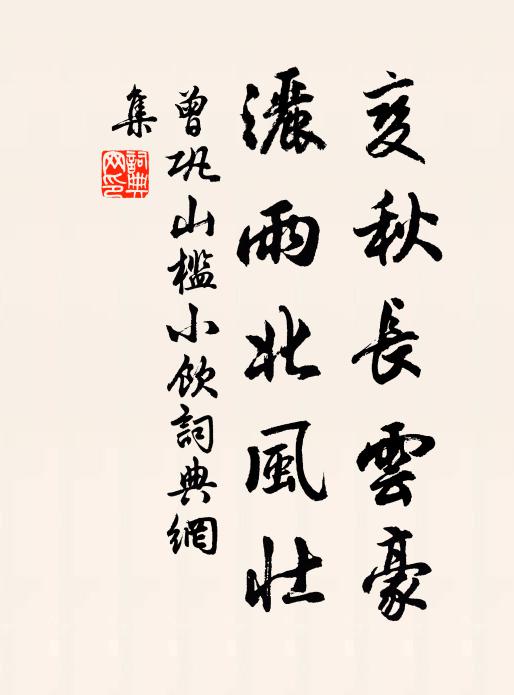 亥秋長雲豪
灑雨北風壯
曾巩山檻小飲詞典網
集
詞典
网印